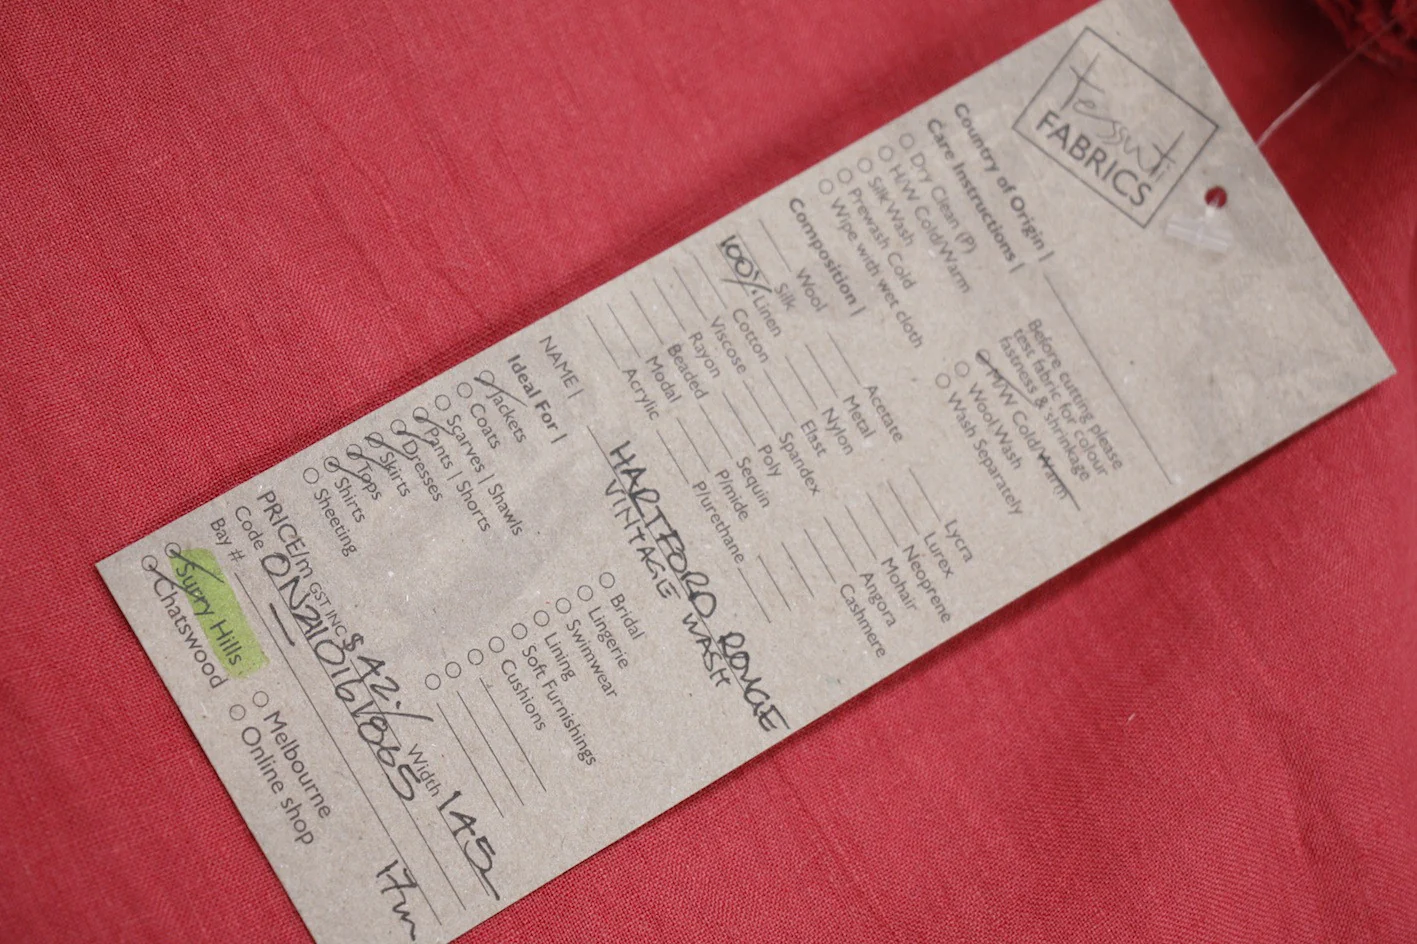 tessuti
FABRICS
Country of Origin |
Care Instructions |
Before cutting please
test fabric for colour
fastness & shrinkage
○ Dry Clean (P)
○ H/W Cold/Warm
○ Silk Wash
○ Prewash Cold
○ Wipe with wet cloth
○ M/W Cold/Warm
○ Wool Wash
○ Wash Separately
Composition |
Wool
Silk
100% Linen
Cotton
Viscose
Rayon
Beaded
Modal
Acrylic
Acetate
Metal
Nylon
Elast
Spandex
Poly
Sequin
P/mide
P/urethane
Lycra
Lurex
Neoprene
Mohair
Angora
Cashmere
NAME | HARTFORD ROUGE
VINTAGE WASH
Ideal For |
○ Jackets
○ Coats
○ Scarves | Shawls
○ Pants | Shorts
○ Dresses
○ Skirts
○ Tops
○ Shirts
○ Sheeting
○ Bridal
○ Lingerie
○ Swimwear
○ Lining
○ Soft Furnishings
○ Cushions
○
○
○
PRICE/m GST INC $ 42./ Width 145
Code ON21016/865
Bay # 17m
○ Surry Hills ○ Melbourne
○ Chatswood ○ Online shop